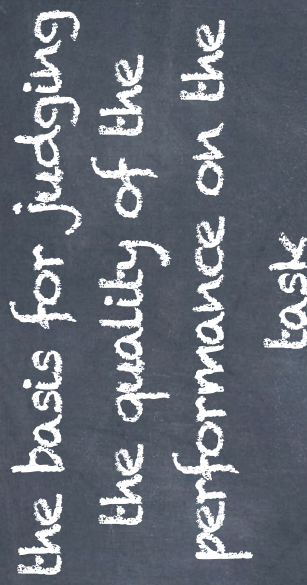 the basis for judging
the quality of the
performance on the
task